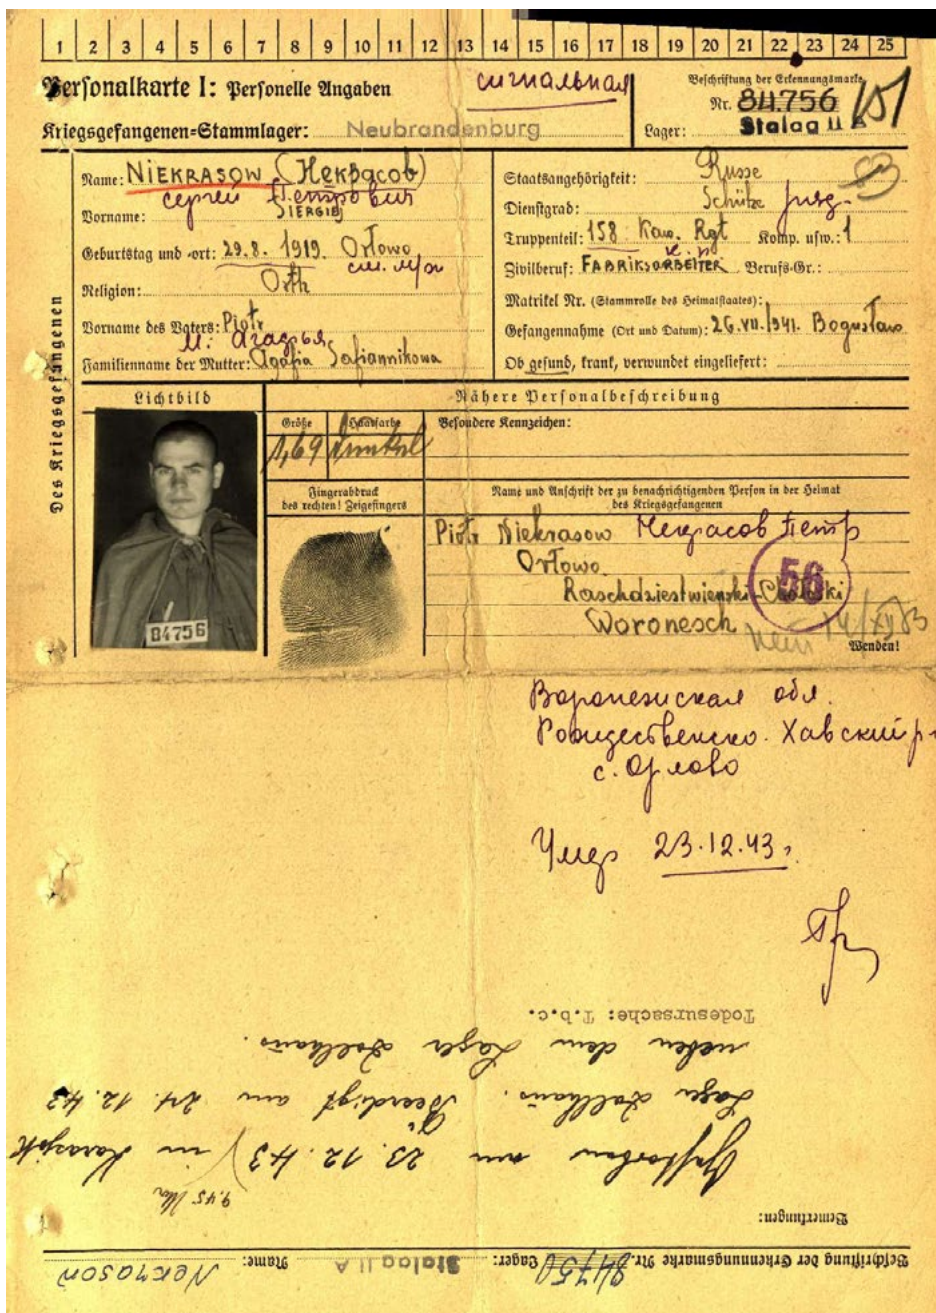 1 2 3 4 5 6 7 8 9 10 11 12 13 14 15 16 17 18 19 20 21 22 23 24 25
Personalkarte I: Personelle Angaben
сигнальная
Beschriftung der Erkennungsmarke
Nr. 84756
Kriegsgefangenen-Stammlager: Neubrandenburg
Lager: Stalag II A
Des Kriegsgefangenen
Name: NIEKRASOW (Некрасов)
Сергей Петрович
Vorname: SIERGIEJ
Geburtstag und -ort: 29.8. 1919. Orłowo
см. н/ж
Religion: Orth
Vorname des Vaters: Piotr
м. Агафья
Familienname der Mutter: Agafia Safiannikowa
Staatsangehörigkeit: Russe
Dienstgrad: Schütze
Truppenteil: 158 Kaw. Rgt Komp. usw.: 1
к. п
Zivilberuf: FABRIKSARBEITER Berufs-Gr.:
Matrikel Nr. (Stammrolle des Heimatstaates):
Gefangennahme (Ort und Datum): 26.VII./941. Bogusław
Ob gesund, krank, verwundet eingeliefert:
Lichtbild
84756
Nähere Personalbeschreibung
Größe Haarfarbe Besondere Kennzeichen:
1,69 dunkel
Fingerabdruck
des rechten! Zeigefingers
Name und Anschrift der zu benachrichtigenden Person in der Heimat
des Kriegsgefangenen
Piotr Niekrasow Некрасов Петр
Orłowo
56
Raschdziestwienski-Chaloski
Woronesch
Wenden!
Воронежская обл.
Рождественско-Хавский р-
с. Орлово
Умер 23.12.43г
Beschriftung der Erkennungsmarke Nr. 84750 Lager: Stalag II A Name: Nekrason
Bemerkungen:
9.45 Uhr
Gestorben am 23.12.43 in
Lager Zollhaus. Beerdigt am 24.12.43
neben dem Lager Zollhaus.
Todesursache: T.b.c.